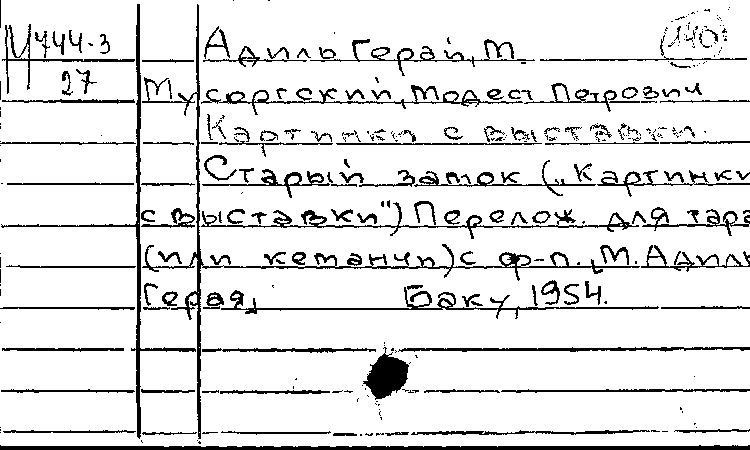 М744-3
27
140
Адиль Герай, М.
Мусоргский, Модест Петрович
Картинки с выставки.
Старый заток („Картинки
с выставки") Перелож. для тара
(или кеманчи) с ф-п. М. Адиль
Герая,
Баку, 1954.